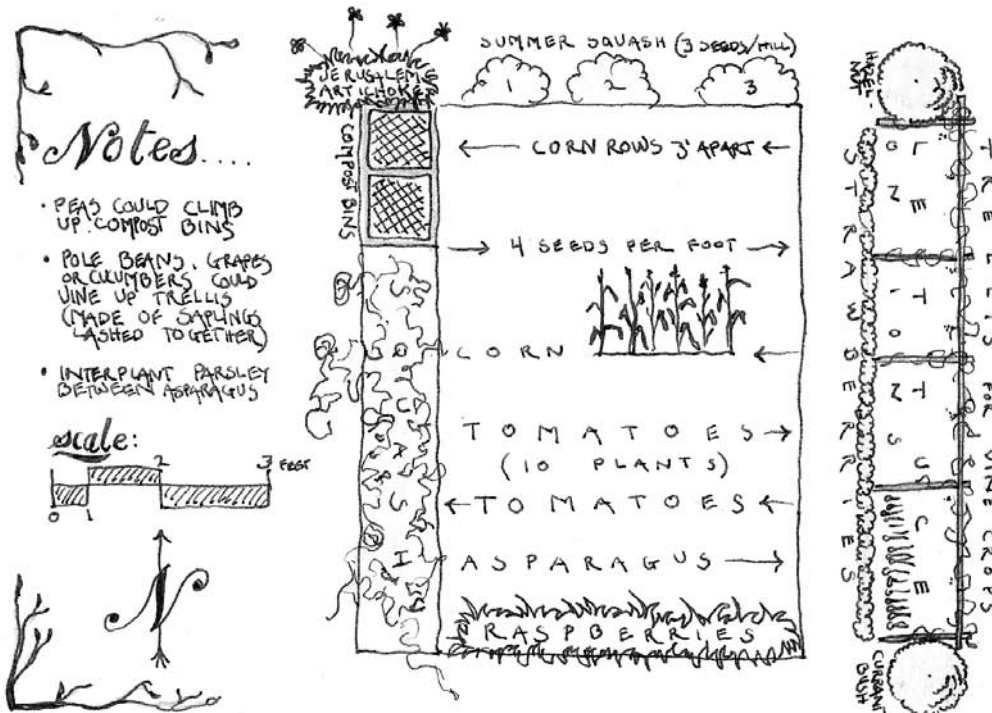 Notes....
• PEAS COULD CLIMB
UP COMPOST BINS
• POLE BEANS, GRAPES
OR CUCUMBERS COULD
VINE UP TRELLIS
(MADE OF SAPLINGS
LASHED TOGETHER)
• INTERPLANT PARSLEY
BETWEEN ASPARAGUS
scale:
0 1 2 3 FEET
N
JERUSALEM
ARTICHOKES
COMPOST BINS
SUMMER SQUASH (3 SEEDS/HILL)
1 2 3
CORN ROWS 3' APART
4 SEEDS PER FOOT
CORN
TOMATOES
(10 PLANTS)
TOMATOES
ASPARAGUS
RASPBERRIES
HAZEL-
NUT
STRAWBERRIES
ONIONS
LETTUCE
TRELLIS FOR VINE CROPS
CURRANT
BUSH